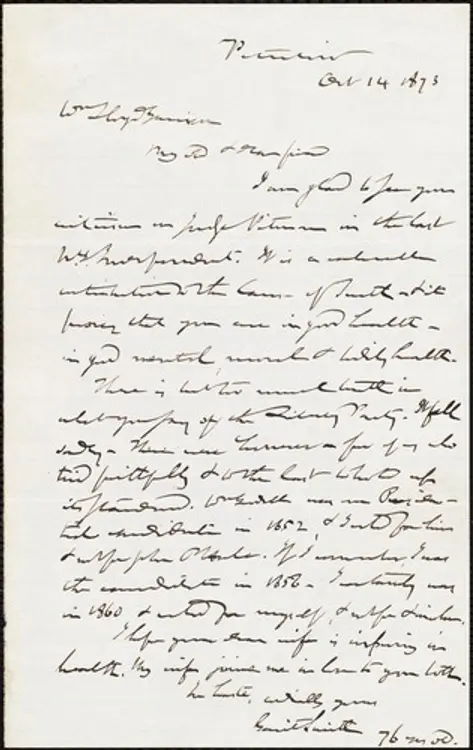 Peterboro
Oct 14 1873
Wm Lloyd Garrison
My old & dear friend
I am glad to see your
criticism on Judge Pitman in the last
Wk. Independent. It is a valuable
contribution to the cause of truth & it
proves that you are in good health —
in good mental, moral & bodily health.
There is but too much truth in
what you say of the Liberty Party. It fell
sadly — There were however a few of us who
faithfully & to the last
its standard. Wm Goodell was our Presiden-
tial candidate in 1852, & I voted for him
& not for John P Hale. If I remember, I was
the candidate in 1856 — I certainly was
in 1860 & voted for myself, & not for Lincoln.
I hope your dear wife is improving in
health. My wife joins me in love to you both.
In haste, cordially yours
Gerrit Smith 76 ys old.